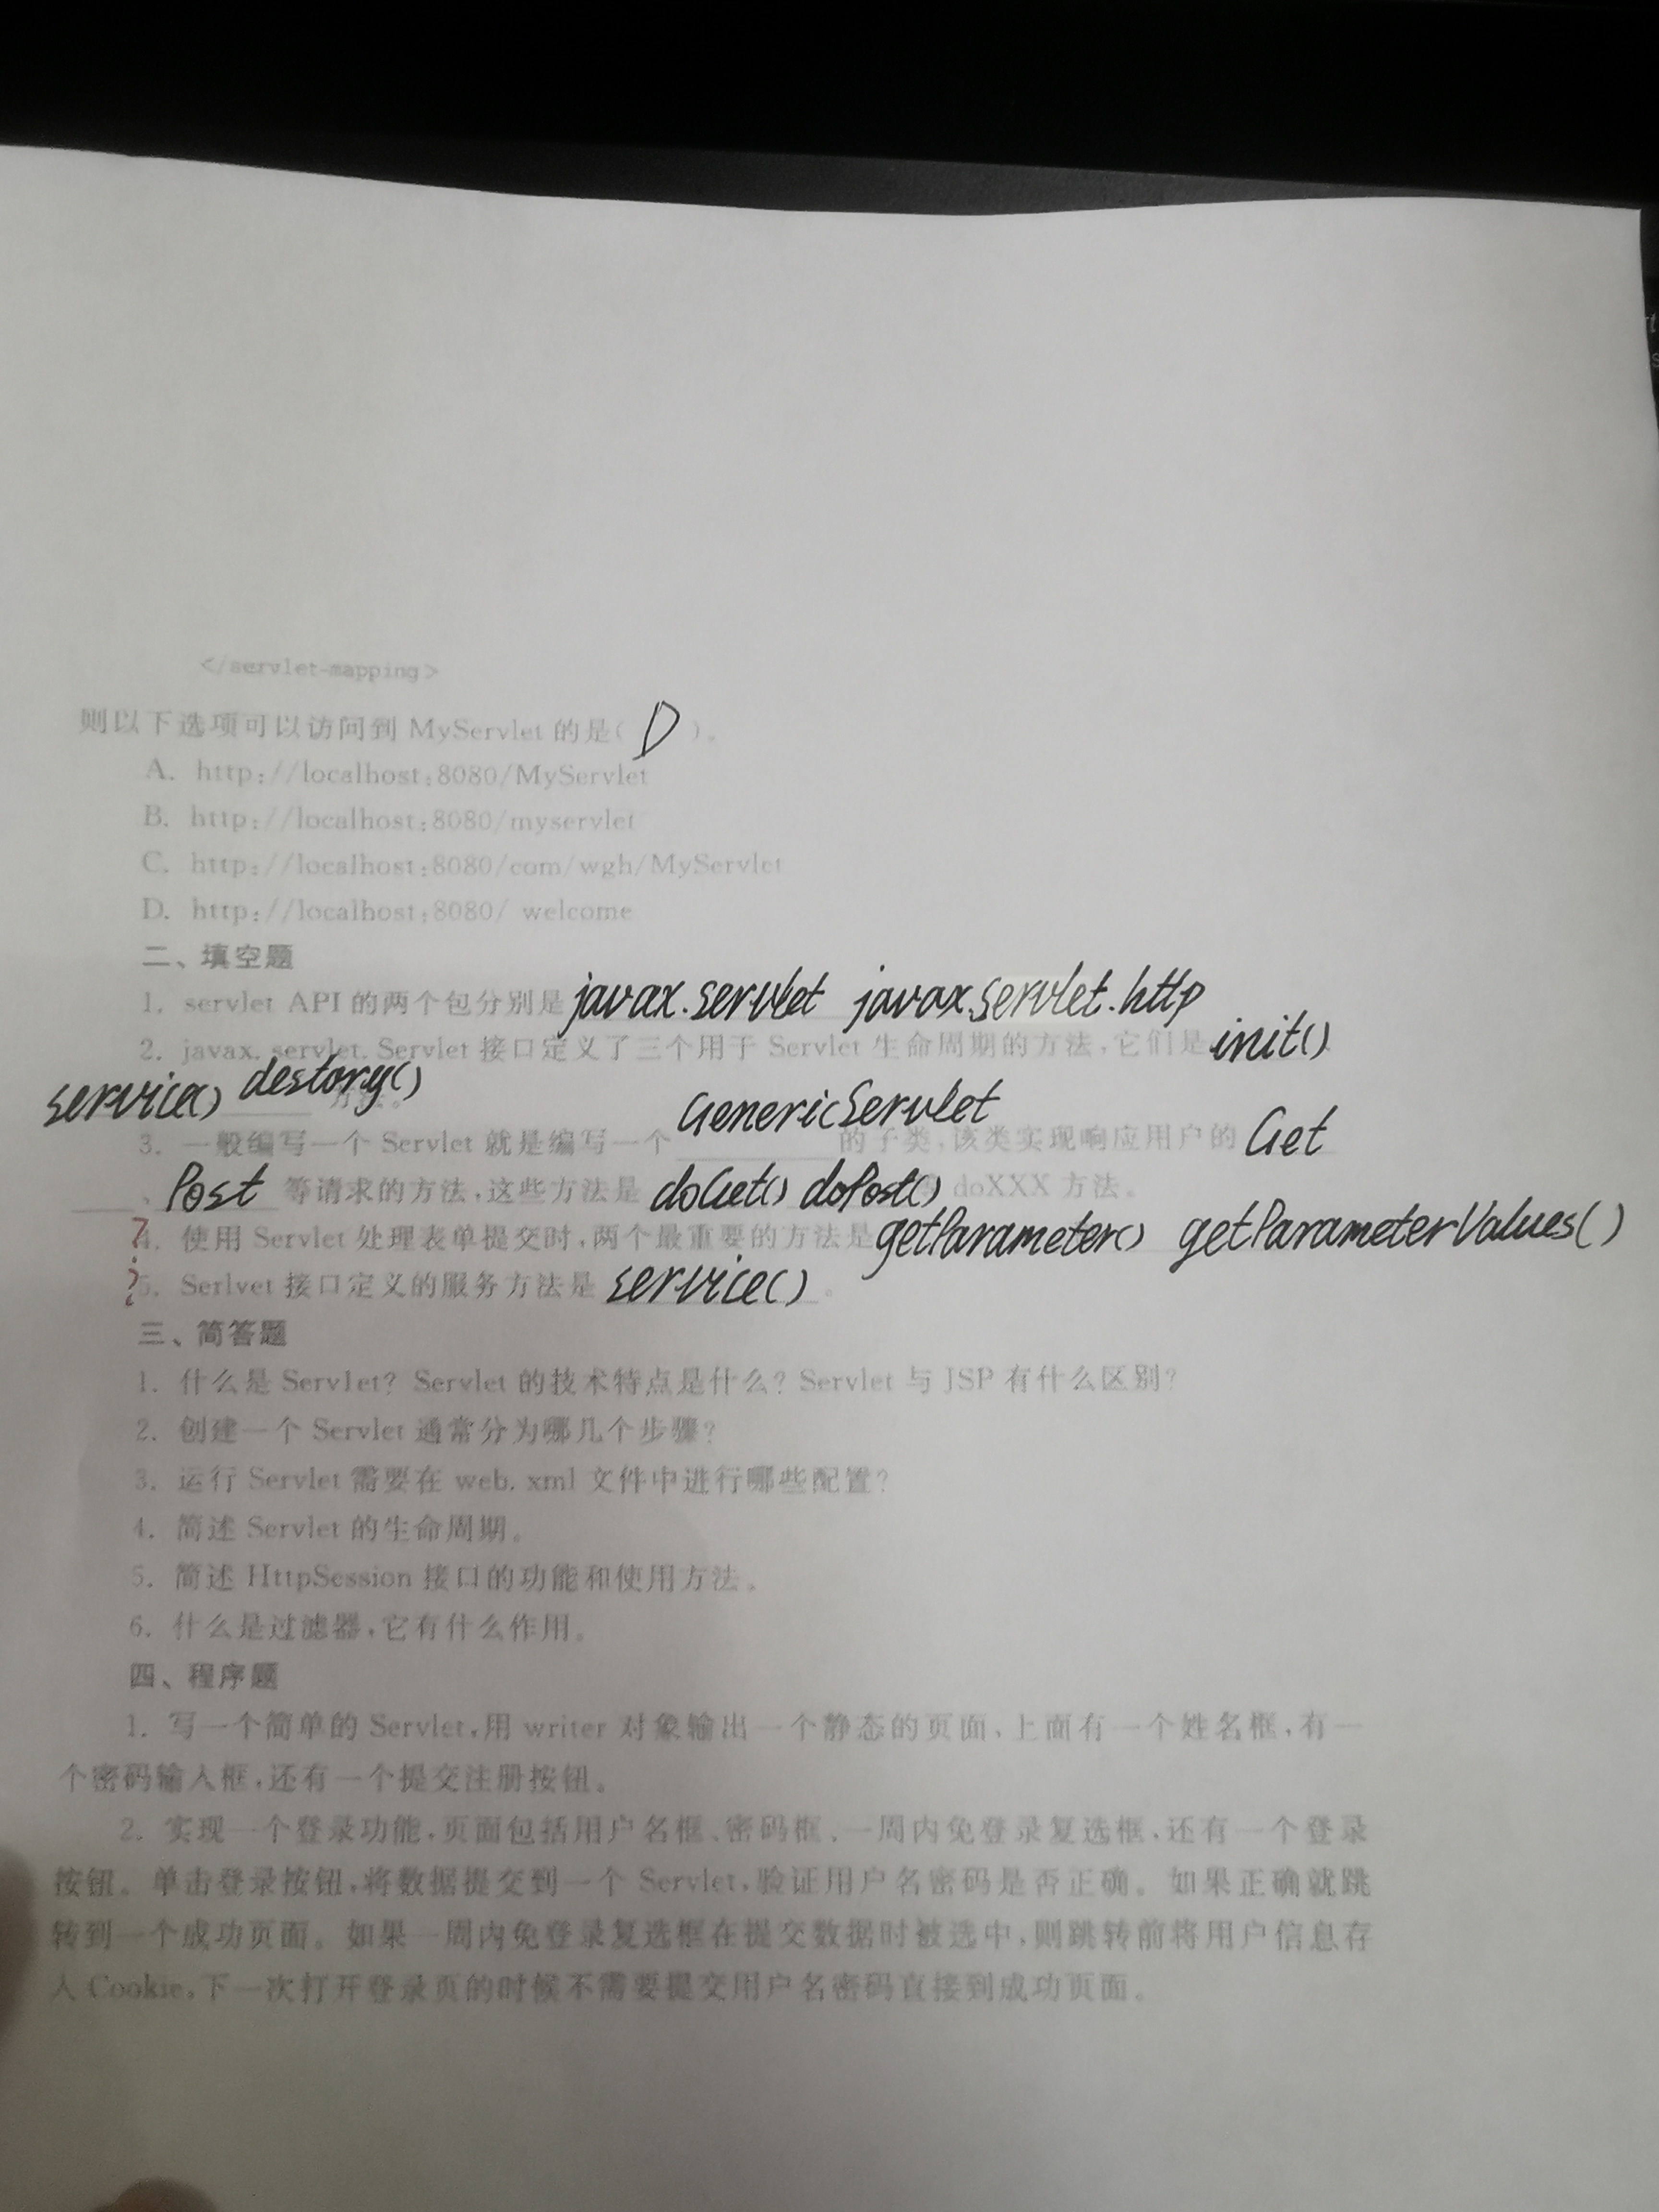 </servlet-mapping>
则以下选项可以访问到 MyServlet 的是( D )。
A. http://localhost:8080/MyServlet
B. http://localhost:8080/myservlet
C. http://localhost:8080/com/wgh/MyServlet
D. http://localhost:8080/ welcome
二、填空题
1. servlet API 的两个包分别是 javax.servlet javax.servlet.http
2. javax. servlet. Servlet 接口定义了三个用于 Servlet 生命周期的方法,它们是 init()
service() destory() 方法。
3. 一般编写一个 Servlet 就是编写一个 GenericServlet 的子类,该类实现响应用户的 Get
、Post 等请求的方法,这些方法是 doGet() doPost() doXXX 方法。
4. 使用 Servlet 处理表单提交时,两个最重要的方法是 getParameter() getParameterValues()
?5. Serlvet 接口定义的服务方法是 service() 。
三、简答题
1. 什么是 Servlet? Servlet 的技术特点是什么? Servlet 与 JSP 有什么区别?
2. 创建一个 Servlet 通常分为哪几个步骤?
3. 运行 Servlet 需要在 web. xml 文件中进行哪些配置?
4. 简述 Servlet 的生命周期。
5. 简述 HttpSession 接口的功能和使用方法。
6. 什么是过滤器,它有什么作用。
四、程序题
1. 写一个简单的 Servlet,用 writer 对象输出一个静态的页面、上面有一个姓名框,有一
个密码输入框,还有一个提交注册按钮。
2. 实现一个登录功能,页面包括用户名框、密码框、一周内免登录复选框,还有一个登录
按钮。单击登录按钮,将数据提交到一个 Servlet,验证用户名密码是否正确。如果正确就跳
转到一个成功页面。如果一周内免登录复选框在提交数据时被选中,则跳转前将用户信息存
入 Cookie,下一次打开登录页的时候不需要提交用户名密码直接到成功页面。